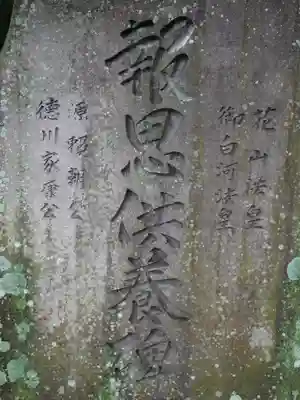 花山法皇
御白河法皇
報恩供養碑
源頼朝公
徳川家康公